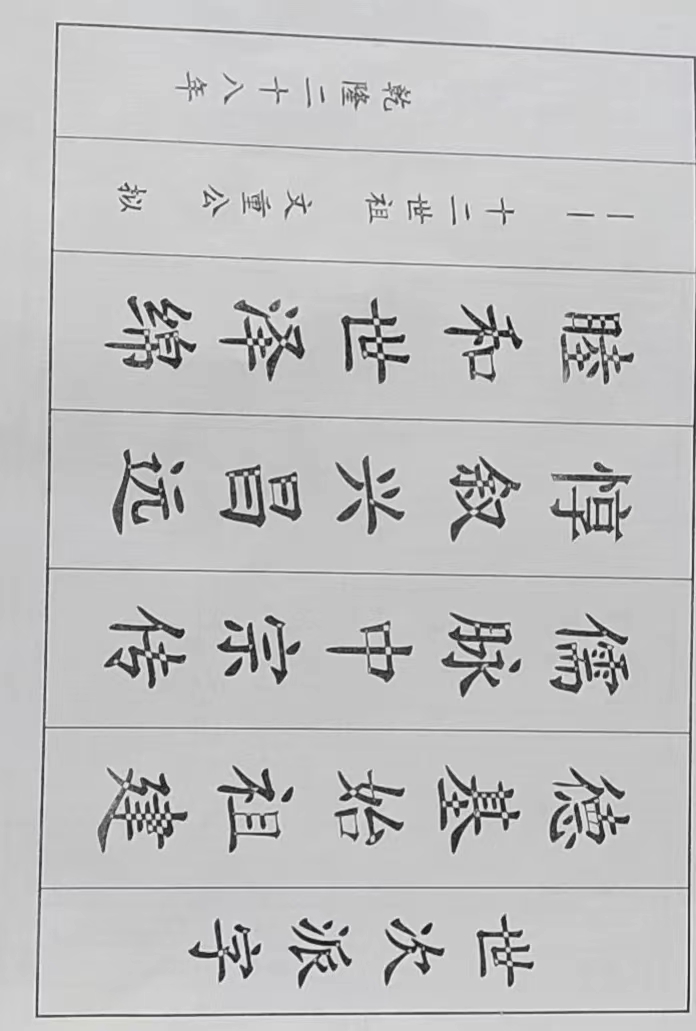 世次派字
德基始祖建
儒脉中宗传
惇叙兴昌远
睦和世泽绵
——十二世祖 文重公 拟
乾隆二十八年